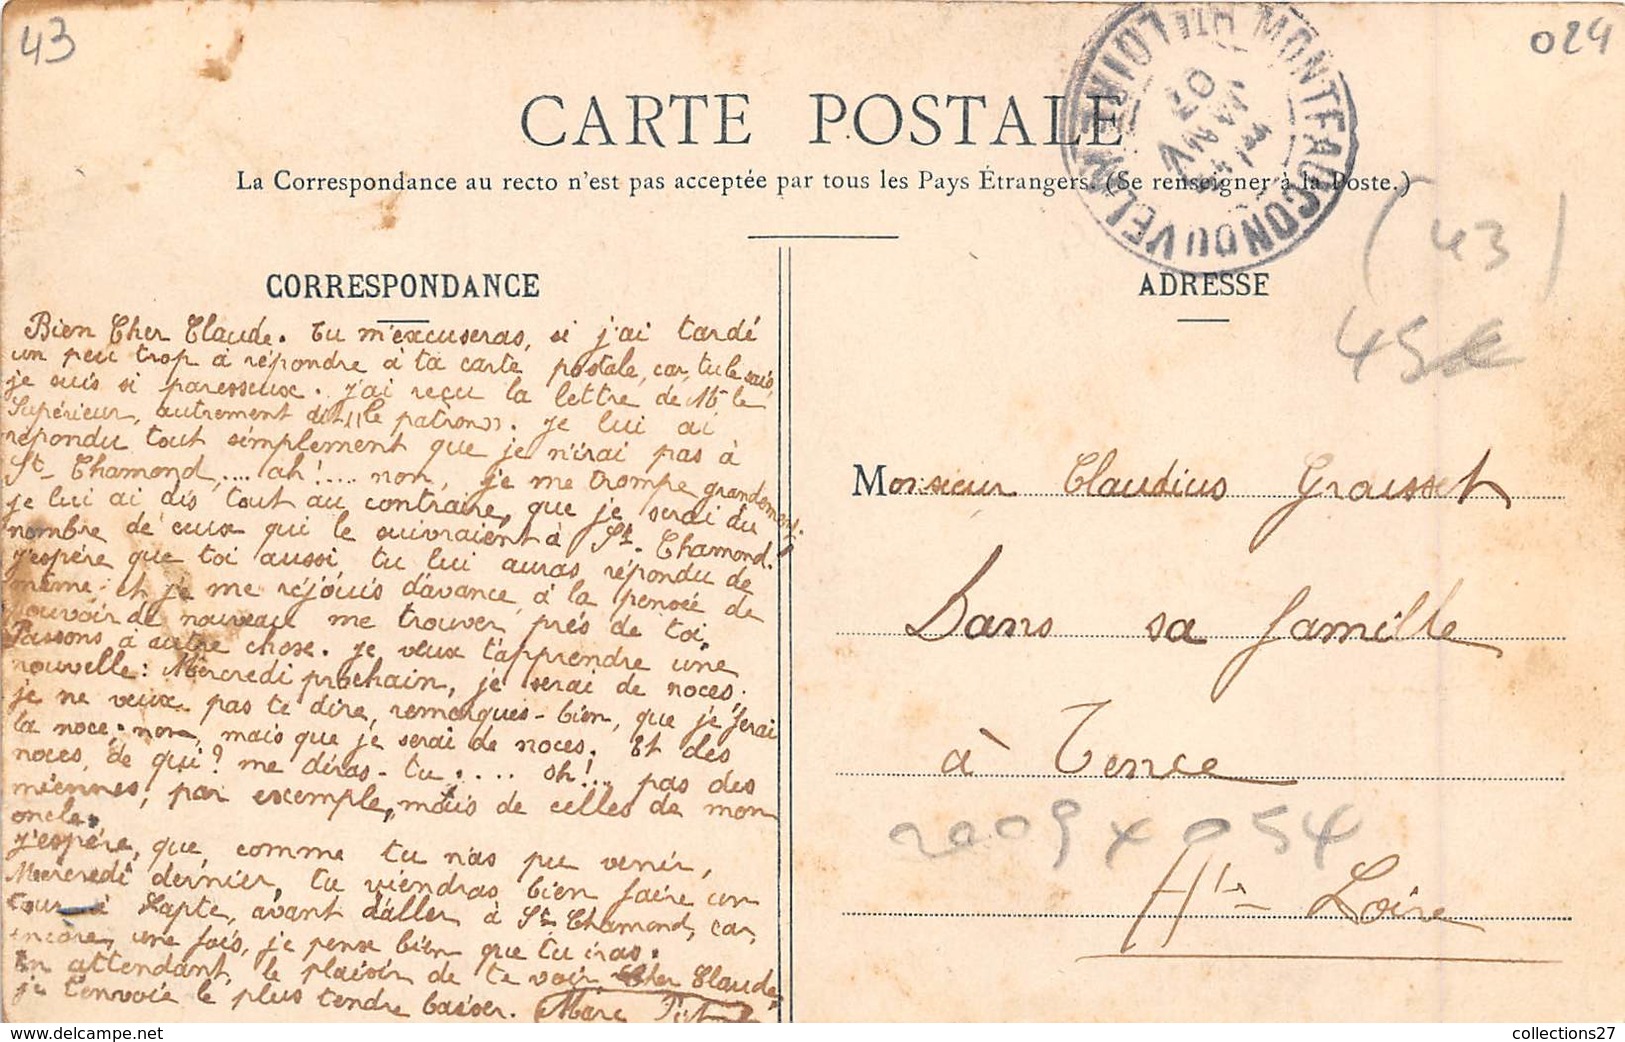 43
024
CARTE POSTALE
La Correspondance au recto n'est pas acceptée par tous les Pays Étrangers. (Se renseigner à la Poste.)
MONTFAUCON DU VELAY HTE LOIRE
JANV
07
(43)
45€
CORRESPONDANCE
Bien Cher Claude. Tu m'excuseras, si j'ai tardé
un peu trop à répondre à ta carte postale, car, tu le sais,
je suis si paresseux. J'ai reçu la lettre de Mr le
Supérieur, autrement dit "le patron". Je lui ai
répondu tout simplement que je n'irai pas à
St-Chamond,.... ah!.... non, je me trompe grandement;
je lui ai dis tout au contraire, que je serai du
nombre de ceux qui le suivraient à St-Chamond.
J'espère que toi aussi tu lui auras répondu de
même; et je me réjouis d'avance, à la pensée de
pouvoir de nouveau me trouver près de toi.
Passons à autre chose. Je veux t'apprendre une
nouvelle: Mercredi prochain, je serai de noces;
je ne veux pas te dire, remarques-bien, que je ferai
la noce; non, mais que je serai de noces. Et des
noces, de qui? me diras-tu.... oh!... pas des
miennes, par exemple, mais de celles de mon
oncle.
J'espère, que, comme tu n'as pu venir,
Mercredi dernier, tu viendras bien faire un
tour à Lapte, avant d'aller à St-Chamond, car,
encore, une fois, je pense bien que tu iras.
En attendant, le plaisir de te voir, Cher Claude,
je t'envoie le plus tendre baiser. Marc
ADRESSE
Monsieur Claudius Grousset
Dans sa famille
à Tence
Hte-Loire